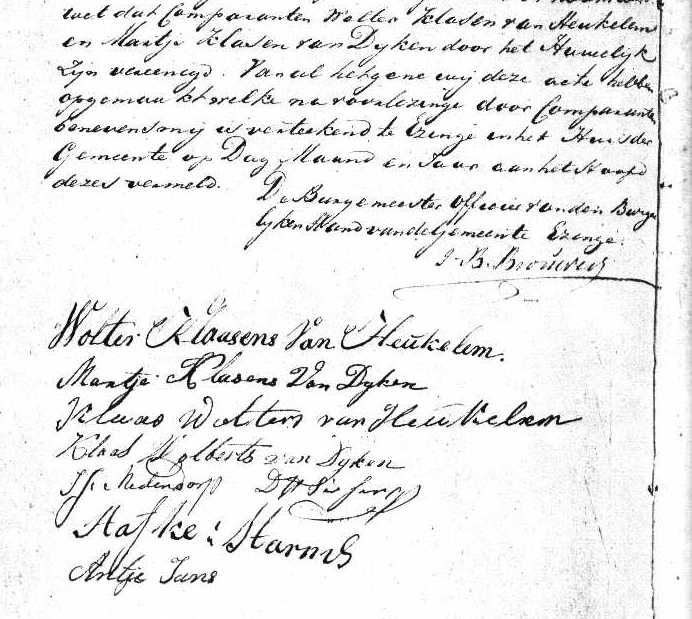 wet dat Comparanten Wolter Klasen van Heukelem
en Martje Klasen van Dyken door het Huwelyk
zyn vereenegd. Van al hetgene wij deze acte hebben
opgemaakt welke na voorlezinge door Comparanten
benevens mij is verteekend te Ezinge in het Huis der
Gemeente op Dag, Maand en Jaar aan het Hoofd
dezes vermeld.
De Burgemeester Officier van den Burger
lyken Stand van de Gemeente Ezinge.
J. B. Brouwer
Wolter Klaasens Van Heukelem.
Martje Klasens Van Dyken
Klaas Wolters van Heukelem
Klaas Wolberts van Dyken
Medendorp
Aafke Harms
Antje Jans